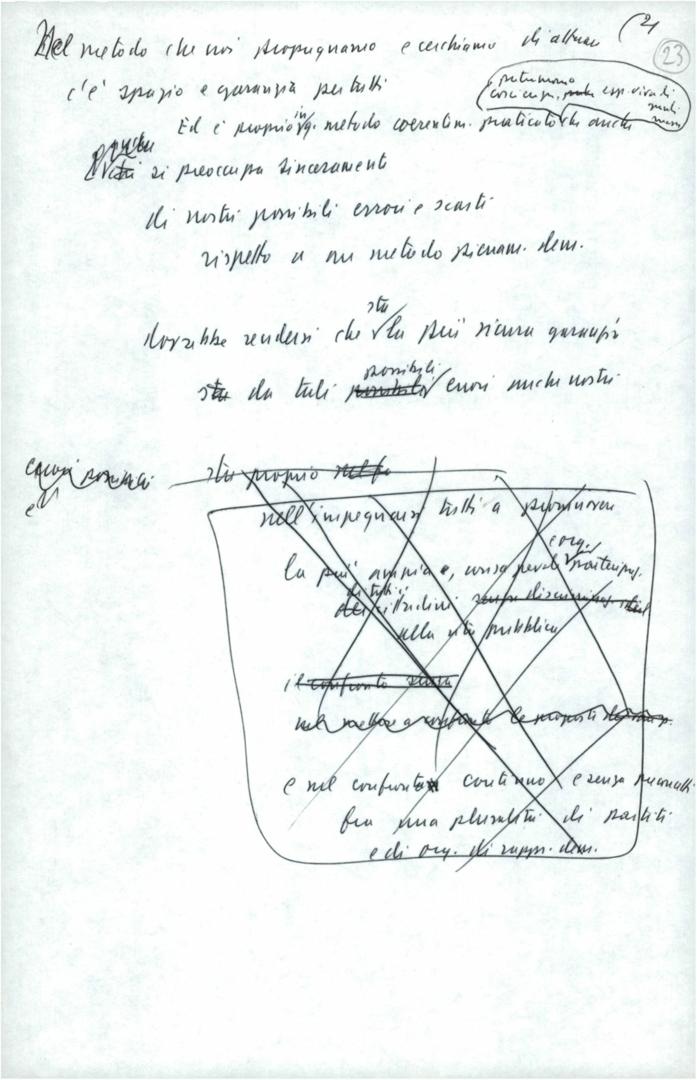 (2
23
Nel metodo che noi propugnamo e cerchiamo di attuare
c'è spazio e garanzia per tutti
Ed è proprio in q. metodo coerentem. praticato che anche
si preoccupa sinceramente
di nostri possibili errori e scarti
rispetto a un metodo pienam. dem.
dovrebbe rendersi che sta la più sicura garanzia
sta da tali possibili possibili errori anche nostri
sta proprio nel
nell'impegnarsi tutti a promuovere
la più ampia e, senza
e org. partecipaz.
di tutti i
dei cittadini senza discriminaz.
alla vita pubblica
il confronto senza
nel mettere a confronto le proposte
e nel confronto continuo e senza
fra una pluralità di partiti
e di org. di rappr. dem.